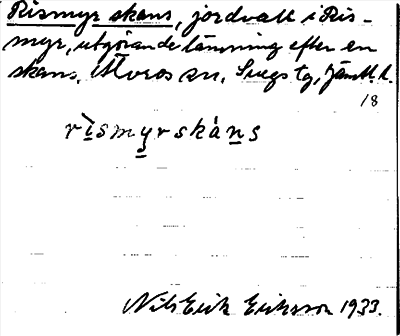 Rismyr skans, jordvall i Ris-
myr, utgörande lämning efter en
skans. Moros sn, Svegs tg, Jämtl. l.
18
rìsmyrskáns
Nils Erik Eriksson 1933.